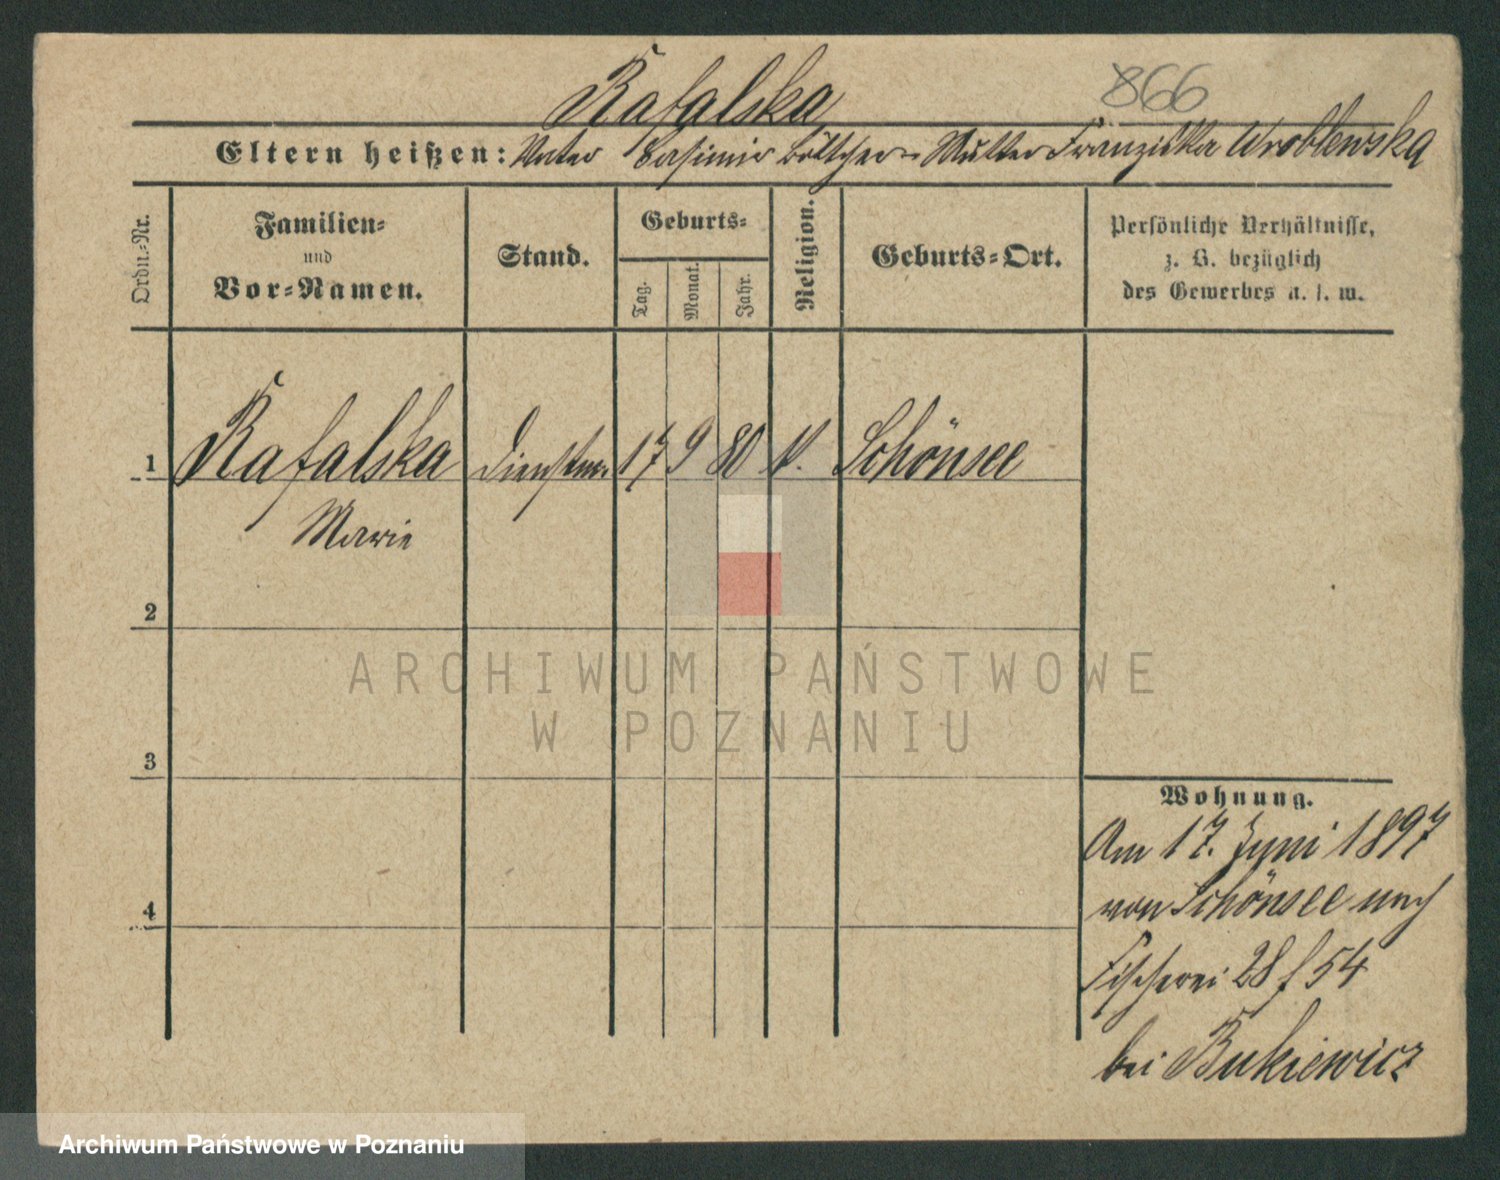 Rafalska
866
Eltern heißen: Vater Casimir Böttcher Mutter Franziska Wroblewska
Ordn.-Nr.
Familien-
und
Vor-Namen.
Stand.
Geburts-
Tag.
Monat.
Jahr.
Religion.
Geburts-Ort.
Persönliche Verhältnisse,
z. B. bezüglich
des Gewerbes u. s. w.
1 Rafalska 17 9 80 k. Schönsee
Marie
2
3
4
Wohnung.
Am 17. Juni 1897
von Schönsee nach
Fischerei 28 f 54
bei Bukiewicz
ARCHIWUM PAŃSTWOWE
W POZNANIU
Archiwum Państwowe w Poznaniu